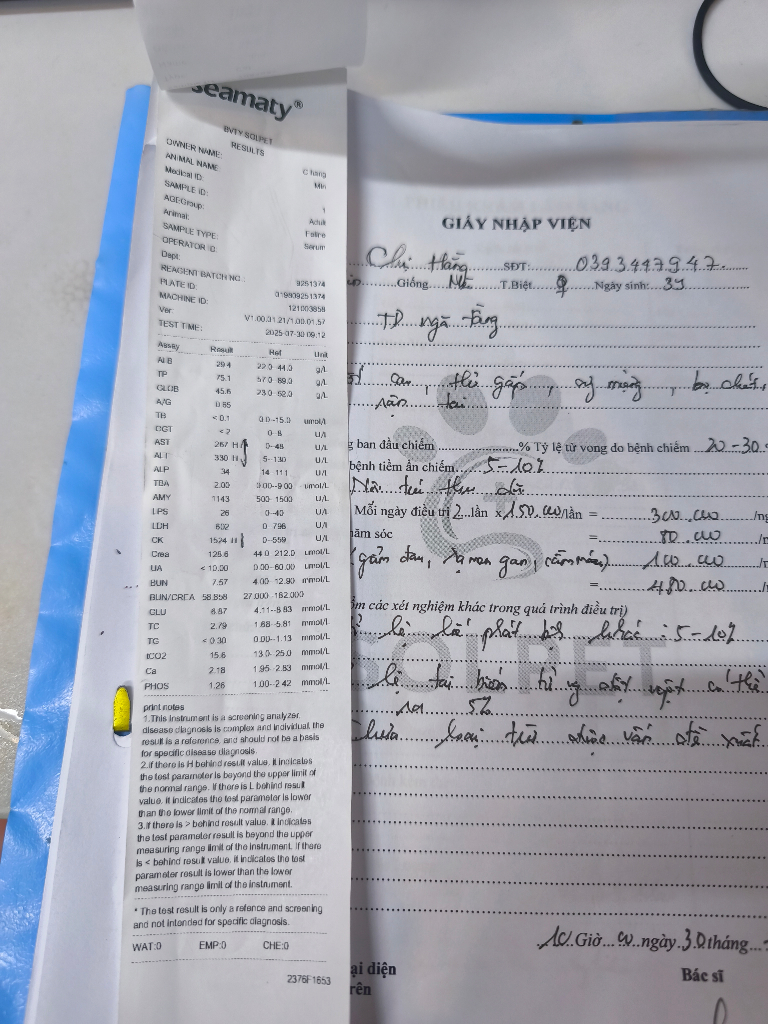 seamaty®
BVTY SOLPET
RESULTS
OWNER NAME: C hang
ANIMAL NAME: Min
Medical ID:
SAMPLE ID: 1
AGE Group: Adult
Animal: Feline
SAMPLE TYPE: Serum
OPERATOR ID:
Dept:
REAGENT BATCH NO.: 9251374
PLATE ID: 019809251374
MACHINE ID: 121003858
Ver: V1.00.01.21/1.00.01.57
TEST TIME: 2025-07-30 09:12
Assay Result Ref Unit
ALB 29.4 22.0-44.0 g/L
TP 75.1 57.0-89.0 g/L
GLOB 45.6 23.0-62.0 g/L
A/G 0.65
TB <0.1 0.0-15.0 umol/L
GGT <2 0-8 U/L
AST 267 H 0-48 U/L
ALT 330 H 5-130 U/L
ALP 34 14-111 U/L
TBA 2.00 0.00-9.00 umol/L
AMY 1143 500-1500 U/L
LPS 26 0-40 U/L
LDH 602 0-798 U/L
CK 1524 H 0-559 U/L
Crea 128.6 44.0-212.0 umol/L
UA <10.00 0.00-60.00 umol/L
BUN 7.57 4.00-12.90 mmol/L
BUN/CREA 58.858 27.000-182.000
GLU 6.87 4.11-8.83 mmol/L
TC 2.79 1.68-5.81 mmol/L
TG <0.30 0.00-1.13 mmol/L
tCO2 15.6 13.0-25.0 mmol/L
Ca 2.18 1.95-2.83 mmol/L
PHOS 1.26 1.00-2.42 mmol/L
print notes
1.This instrument is a screening analyzer,
disease diagnosis is complex and individual, the
result is a reference, and should not be a basis
for specific disease diagnosis.
2.if there is H behind result value, it indicates
the test parameter is beyond the upper limit of
the normal range. If there is L behind result
value, it indicates the test parameter is lower
than the lower limit of the normal range.
3.if there is > behind result value, it indicates
the test parameter result is beyond the upper
measuring range limit of the instrument. If there
is < behind result value, it indicates the test
parameter result is lower than the lower
measuring range limit of the instrument.
* The test result is only a refence and screening
and not intended for specific diagnosis.
WAT:0 EMP:0 CHE:0
2376F1653
GIẤY NHẬP VIỆN
Chị Hằng SĐT: 0393447947
Giống T.Biệt ♀ Ngày sinh: 3y
TD ngã tầng
ban đầu chiếm % Tỷ lệ tử vong do bệnh chiếm 20-30
bệnh tiềm ẩn chiếm 5-10%
Mỗi ngày điều trị 2 lần x 150.000/lần = 300.000
săm sóc = 80.000
(giảm đau, hạ men gan, cầm máu) 100.000
= 480.000
các xét nghiệm khác trong quá trình điều trị)
lệ phát bệnh khác: 5-10%
SOLPET
lệ tai biến
5%
Chưa loại trừ được vấn đề xuất
10 Giờ 00 ngày 30 tháng
đại diện
trên
Bác sĩ